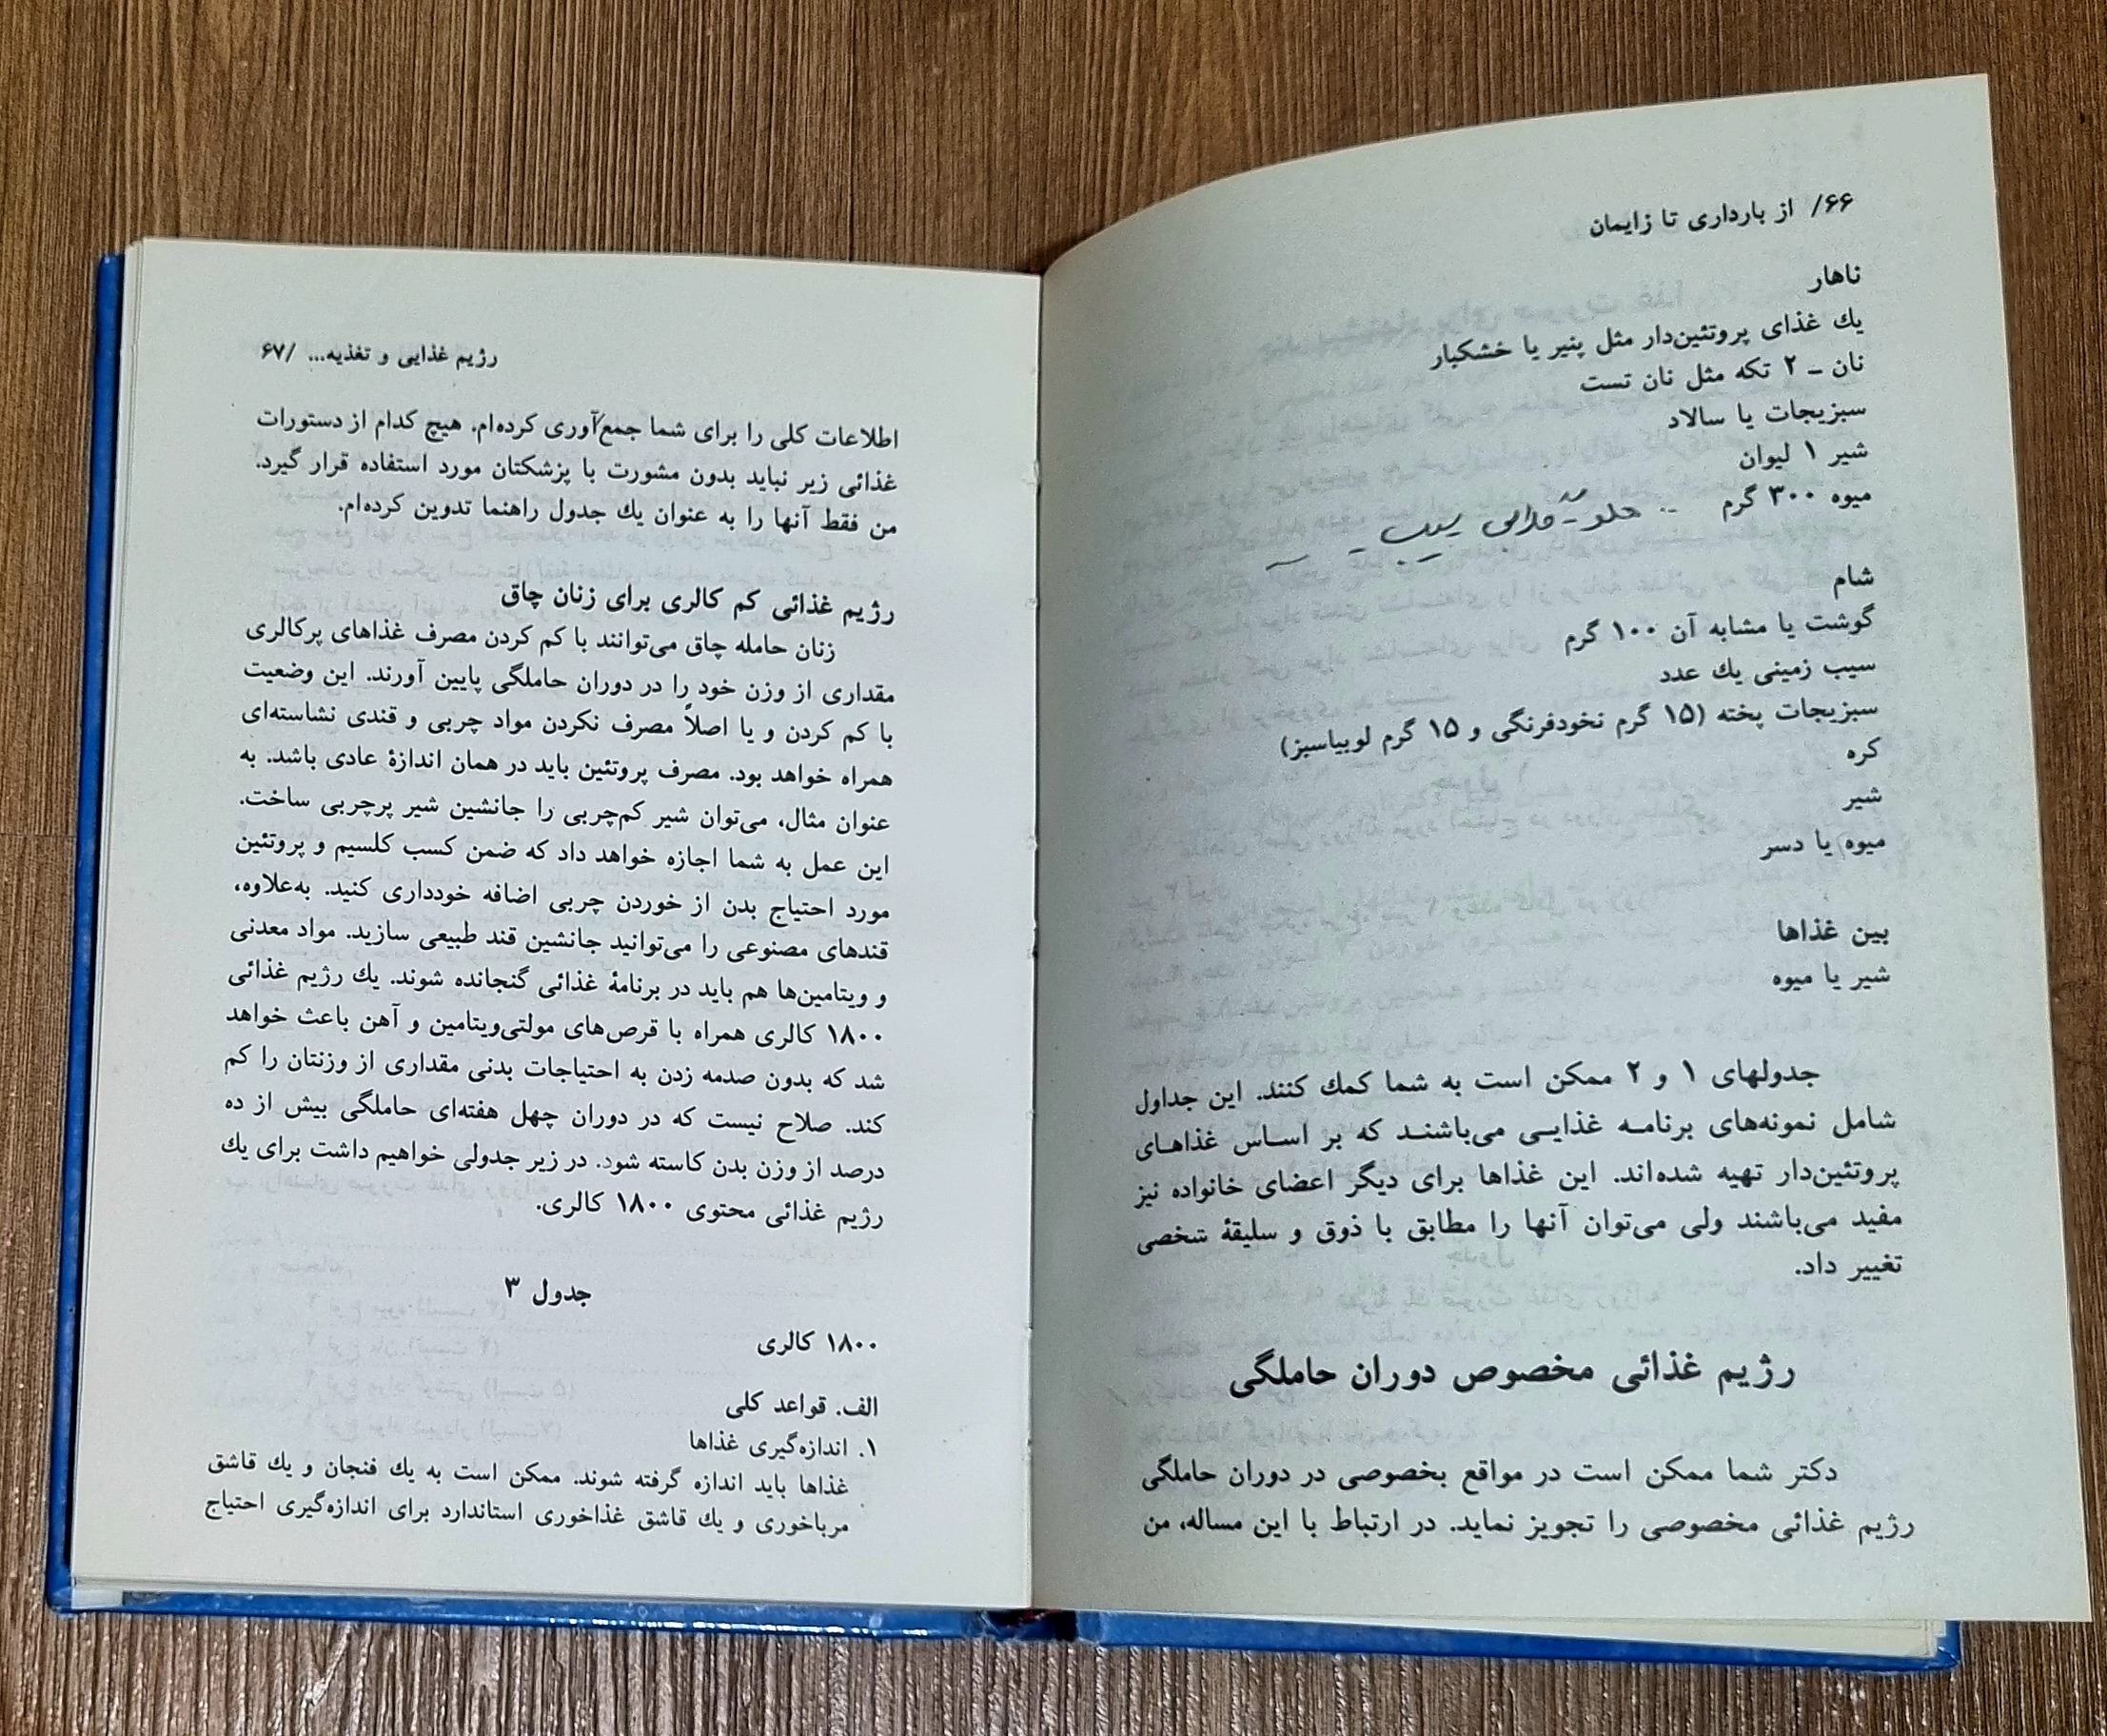 ۶۶/ از بارداری تا زایمان
ناهار
یك غذای پروتئین‌دار مثل پنیر یا خشکبار
نان ـ ۲ تکه مثل نان تست
سبزیجات یا سالاد
شیر ۱ لیوان
میوه ۳۰۰ گرم
شام
گوشت یا مشابه آن ۱۰۰ گرم
سیب زمینی یك عدد
سبزیجات پخته (۱۵ گرم نخودفرنگی و ۱۵ گرم لوبیاسبز)
کره
شیر
میوه یا دسر
بین غذاها
شیر یا میوه
جدولهای ۱ و ۲ ممکن است به شما کمك کنند. این جداول
شامل نمونه‌های برنامـه غذایـی می‌باشنـد که بر اسـاس غذاهـای
پروتئین‌دار تهیه شده‌اند. این غذاها برای دیگر اعضای خانواده نیز
مفید می‌باشند ولی می‌توان آنها را مطابق با ذوق و سلیقهٔ شخصی
تغییر داد.
رژیم غذائی مخصوص دوران حاملگی
دکتر شما ممکن است در مواقع بخصوصی در دوران حاملگی
رژیم غذائی مخصوصی را تجویز نماید. در ارتباط با این مساله، من
رژیم غذایی و تغذیه... /۶۷
اطلاعات کلی را برای شما جمع‌آوری کرده‌ام. هیچ کدام از دستورات
غذائی زیر نباید بدون مشورت با پزشکتان مورد استفاده قرار گیرد.
من فقط آنها را به عنوان یك جدول راهنما تدوین کرده‌ام.
رژیم غذائی کم کالری برای زنان چاق
زنان حامله چاق می‌توانند با کم کردن مصرف غذاهای پرکالری
مقداری از وزن خود را در دوران حاملگی پایین آورند. این وضعیت
با کم کردن و یا اصلاً مصرف نکردن مواد چربی و قندی نشاسته‌ای
همراه خواهد بود. مصرف پروتئین باید در همان اندازهٔ عادی باشد. به
عنوان مثال، می‌توان شیر کم‌چربی را جانشین شیر پرچربی ساخت.
این عمل به شما اجازه خواهد داد که ضمن کسب کلسیم و پروتئین
مورد احتیاج بدن از خوردن چربی اضافه خودداری کنید. به‌علاوه،
قندهای مصنوعی را می‌توانید جانشین قند طبیعی سازید. مواد معدنی
و ویتامین‌ها هم باید در برنامهٔ غذائی گنجانده شوند. یك رژیم غذائی
۱۸۰۰ کالری همراه با قرص‌های مولتی‌ویتامین و آهن باعث خواهد
شد که بدون صدمه زدن به احتیاجات بدنی مقداری از وزنتان را کم
کند. صلاح نیست که در دوران چهل هفته‌ای حاملگی بیش از ده
درصد از وزن بدن کاسته شود. در زیر جدولی خواهیم داشت برای یك
رژیم غذائی محتوی ۱۸۰۰ کالری.
جدول ۳
۱۸۰۰ کالری
الف. قواعد کلی
۱. اندازه‌گیری غذاها
غذاها باید اندازه گرفته شوند. ممکن است به یك فنجان و یك قاشق
مرباخوری و یك قاشق غذاخوری استاندارد برای اندازه‌گیری احتیاج